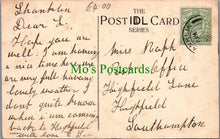 Shanklin
64.00
Dear F.
Hope you are
well. I am having
a nice time here we
are very full having
lovely weather I
dont quite know
when I am coming
back to Highfield
with love from
THE
IDL
POST CARD
SERIES
Miss
Post Office
Highfield Lane
Highfield
Southampton
Mo's Postcards
IndiaPicture.in